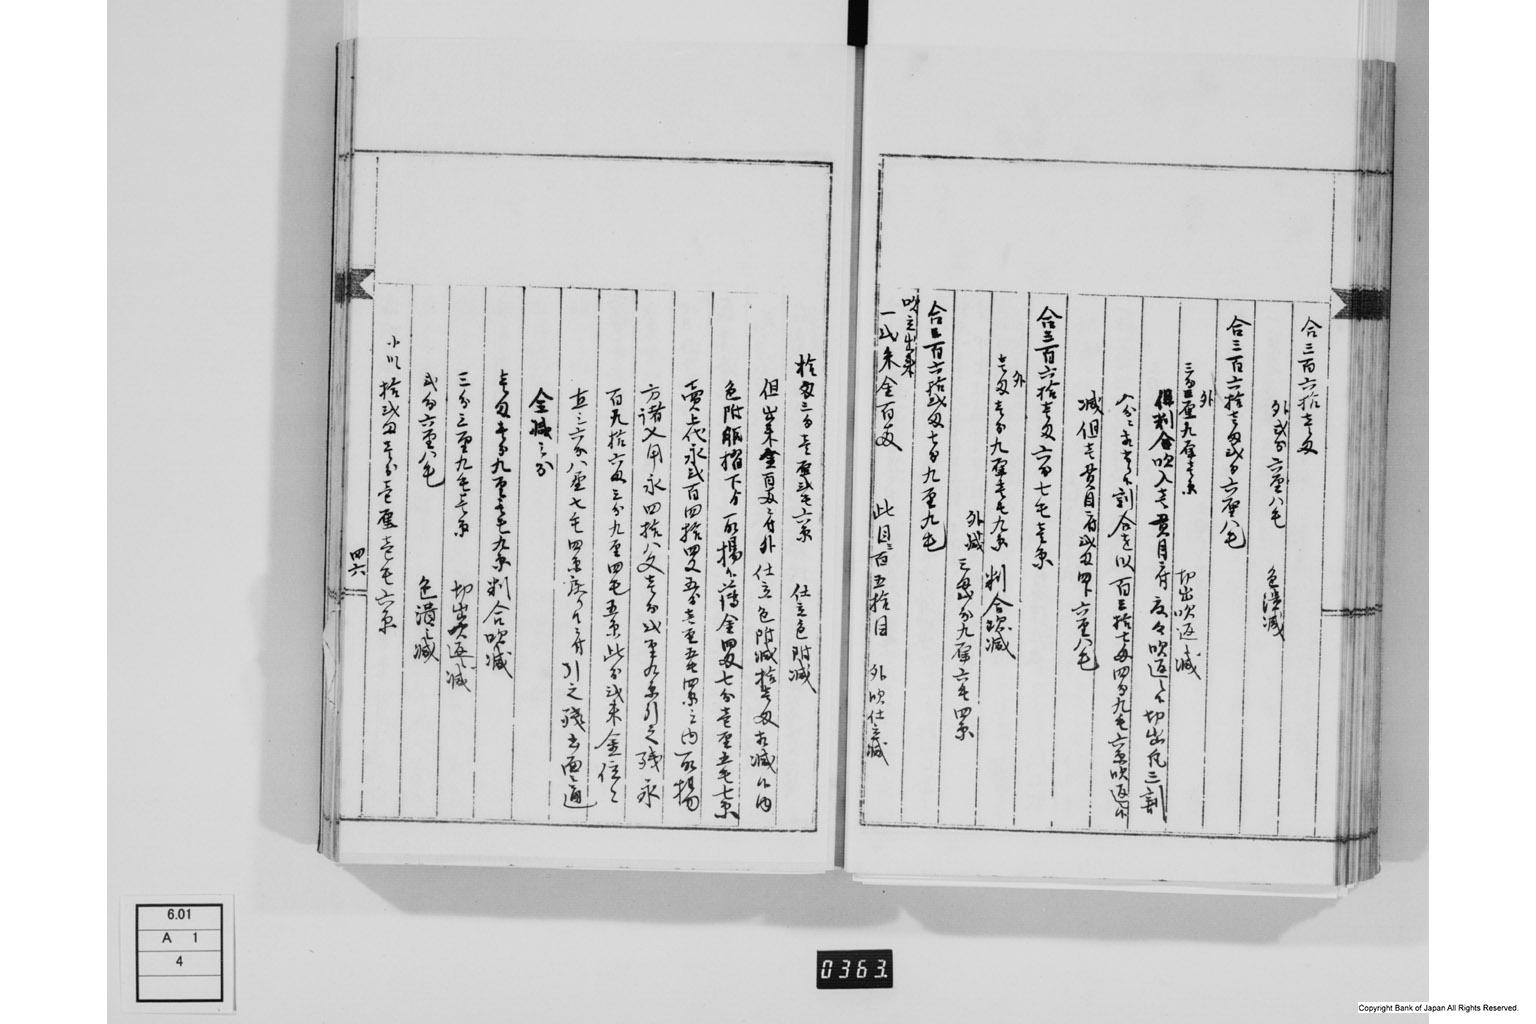 合三百六拾壱匁
外弐分六厘八毛 色漬減
合三百六拾壱匁弐分六厘八毛
外
三分三厘九毛壱糸 切出吹返減
但判合吹入壱貫目ニ付度々吹返シ切出凡三割
八分
割合を以百三拾七匁四分九毛六糸吹返
減但壱貫目ニ付弐匁四分六厘八毛
合三百六拾壱匁六分七毛壱糸
外
壱匁壱分九厘壱毛九糸 判合吹減
外減 三匁弐分九厘六毛四糸
合三百六拾弐匁七分九厘九毛
吹立出来
一弐朱金百両 此目三百五拾目 外吹仕立減
拾匁三分壱厘弐毛六糸 仕立色附減
但出来金百両ニ付外仕立色附減拾壱匁 減之内
色附 下 取揚 薄金四匁七分壱厘五毛七糸
売上代永弐百四拾四文五分壱厘五毛四糸之内取揚
方諸入用永四拾八文壱分弐厘 糸引之残永
百九拾六文三分九厘四毛五糸此分弐朱金位
直三六分八厘七毛四糸 付引之残書面之通
金減三分
壱匁壱分九厘壱毛九糸 判合吹減
三分三厘九毛壱糸 切出吹返減
弐分六厘八毛 色漬減
小以拾弐匁壱分壱厘壱毛六糸
四六
6.01
A 1
4
0363.
Copyright Bank of Japan All Rights Reserved.